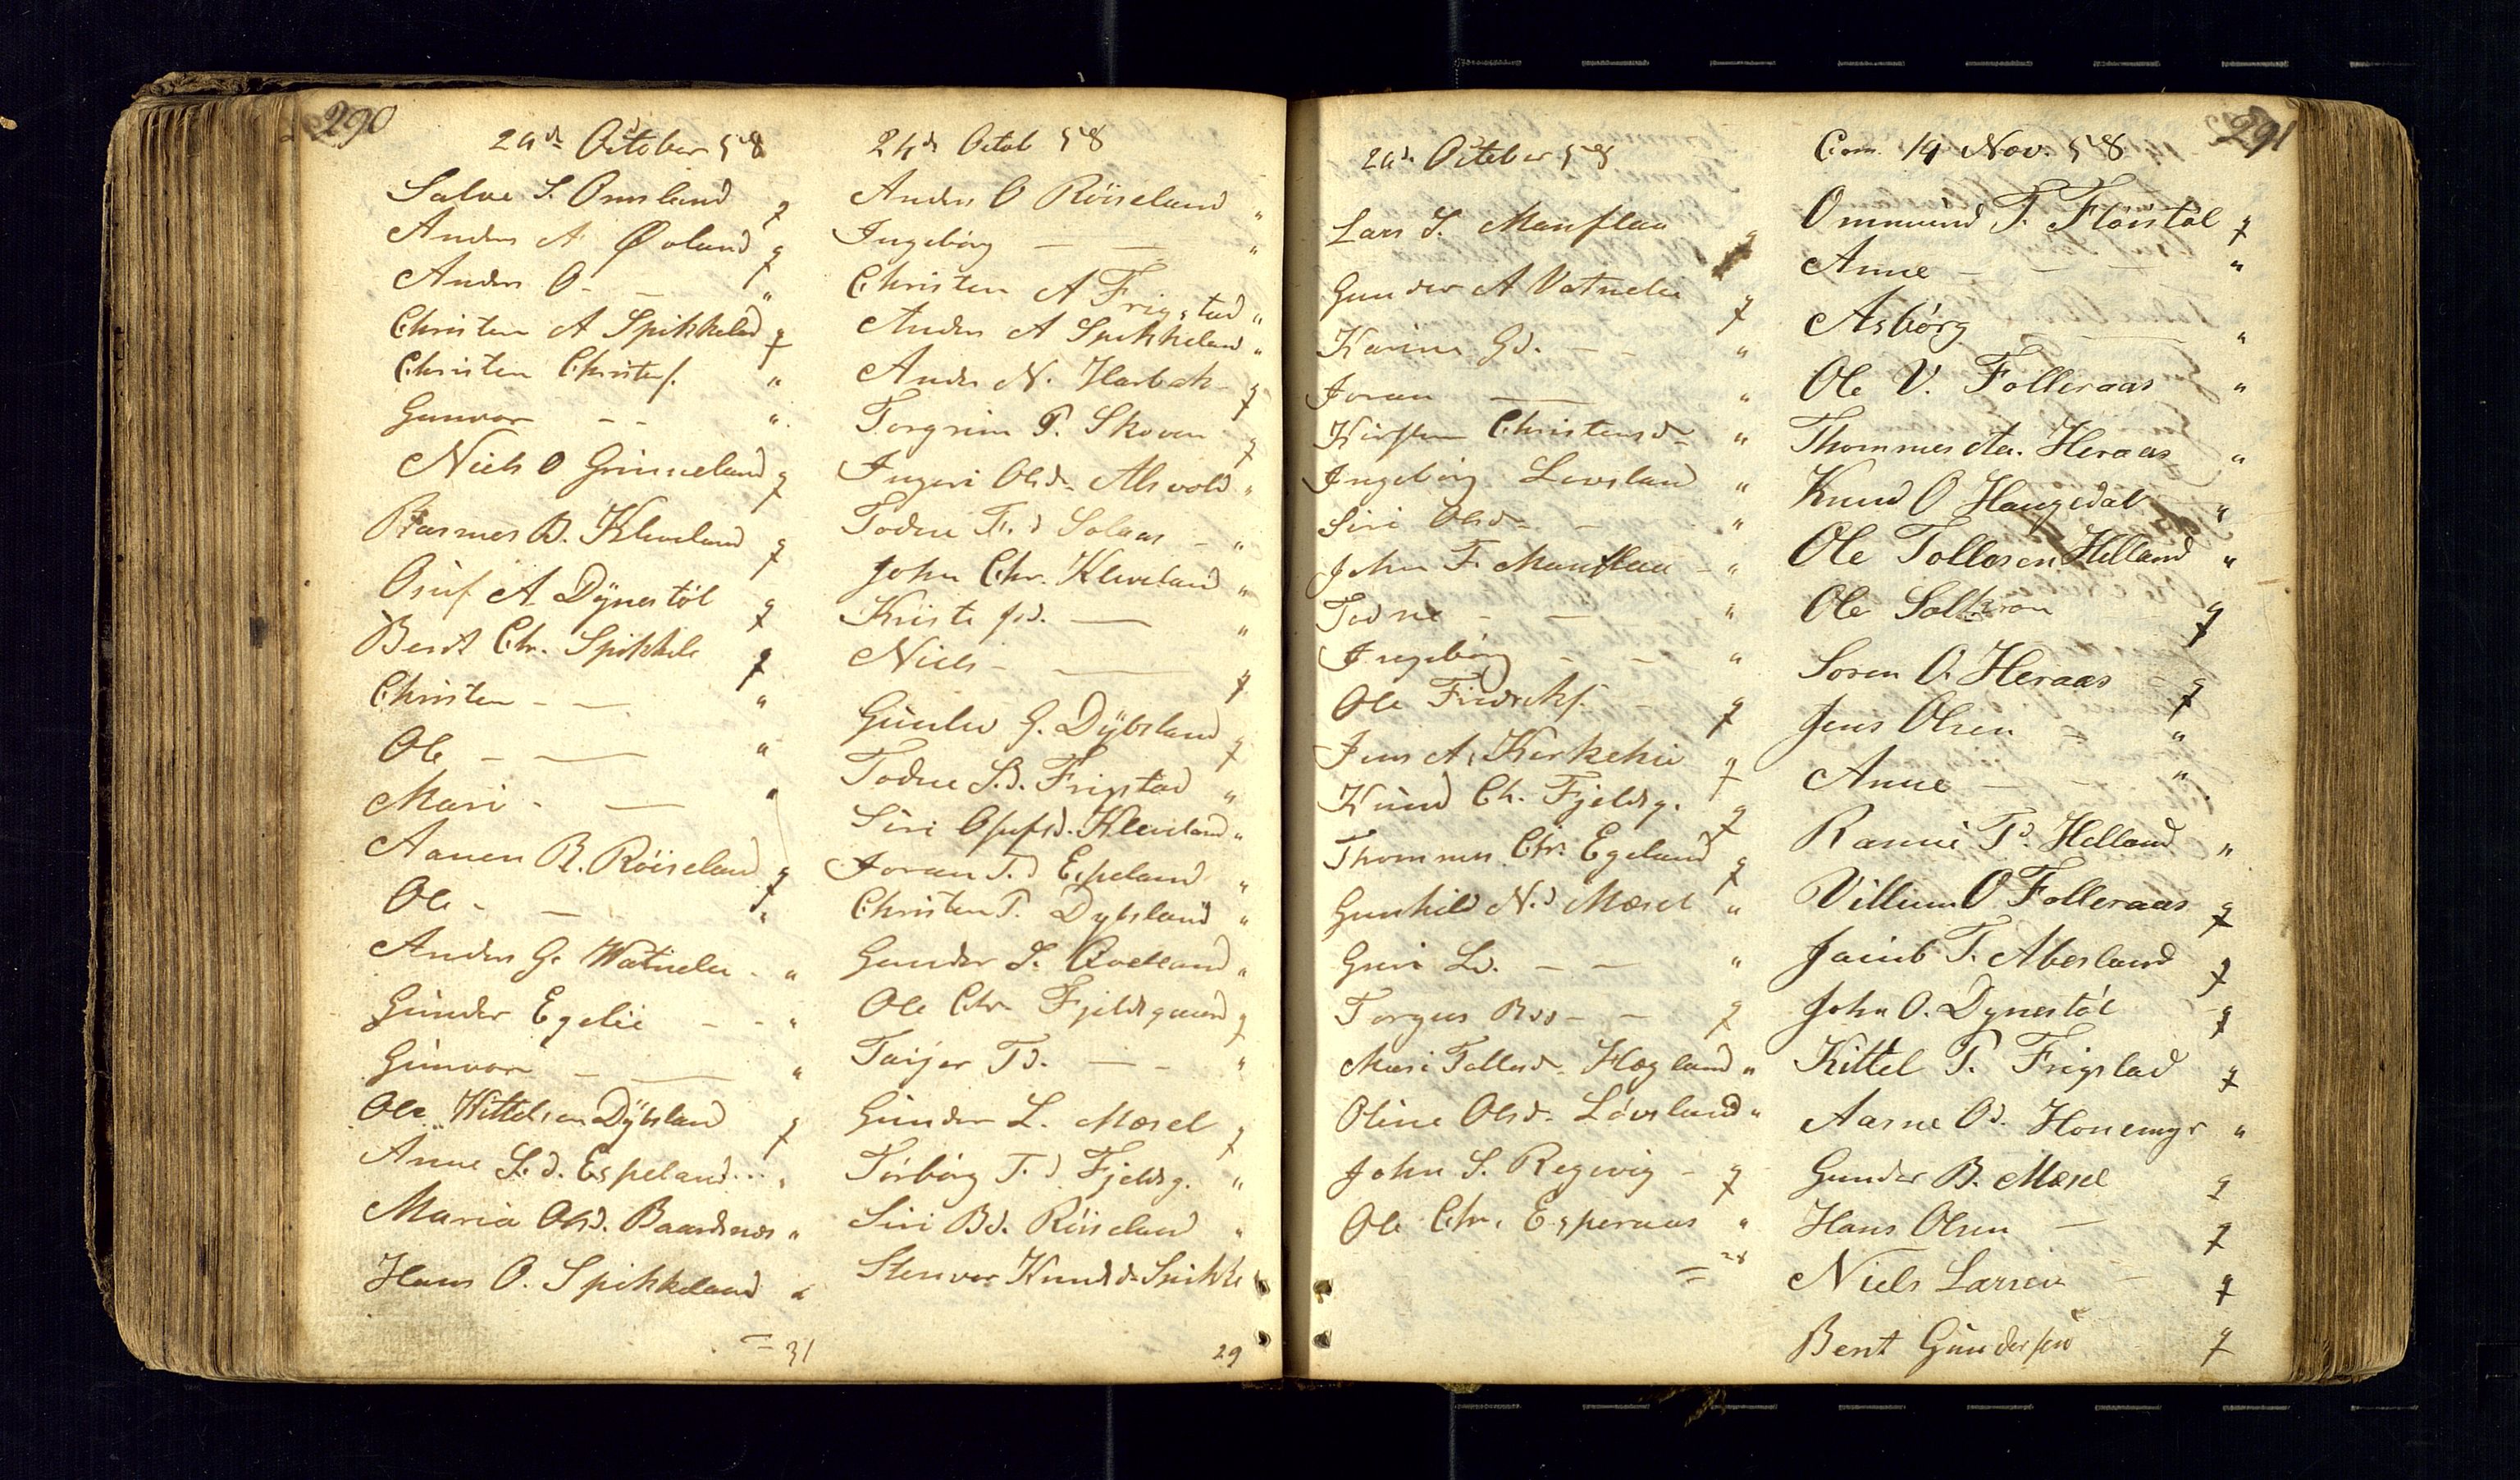 290
24de October 58
Salve S. Omsland q
Anders A Øvland q
Anders O - - "
Christen A Spikkeland q
Christen Christens. "
Gunvor - - "
Niels O Grinneland q
Rasmes B. Kleveland q
Osuf A Dynestøl q
Berdt Chr. Spikkele q
Christen - - "
Ole - - "
Mari - - "
Aanen R. Röiseland q
Ole - - "
Anders G. Watnelie - "
Gunder Egelie - - "
Gunvor - - "
Ole Kittelsen Dybsland q
Anne L.d. Espeland "
Maria Olsd. Baardsnes "
Hans O. Spikkeland "
= 31
24de Octob 58
Anders O Röiseland "
Ingeborg - - "
Christen A Frigstad "
Anders A Spikkeland "
Anders N. Harbak q
Torgrim T. Skoven q
Ingeri Olsd. Alsvold "
Todne T.d Solaas - "
John Chr. Kleveland "
Kristi Jsd. - "
Niels - - q
Gunlev G. Dybsland q
Todne S.d. Frigstad "
Siri Osufsd. Kleveland "
Joran T.d Espeland "
Christen T. Dybsland "
Gunder S. Qvelland "
Ole Chr. Fjeldsgaard q
Taijer Td. - - "
Gunder L. Mæsel q
Torborg T.d Fjeldsg. "
Siri Bd. Röiseland "
Stenvor Knudsd. Spikke "
29
291
24de October 58
Lars S. Manflaa q
Gunder A Vatnelie q
Karine Gd. - - "
Joran - "
Kirsten Christensd. "
Ingeborg Lovsland "
Siri Olsd. - "
John F. Manflaa - "
Todne - - "
Ingeborg - - "
Ole Fredriks. - q
Jens A. Kirkehei q
Knud Ch. Fjeldsg. q
Thommes Chr. Egeland q
Gunhild N.d Mæsel "
Guri Ld. - - "
Torgus - - q
Mari Tallesd. Hægland "
Oline Olsd. Lövsland "
John S. Regevig - q
Ole Chr. Esperaas "
= 28
Com. 14 Nov. 58
Ommund T. Flöistøl q
Anne - - - "
Asbörg - "
Ole V. Folleraas "
Thommes Aa. Heraas "
Knud O Haugedal "
Ole Tollesen Helland "
Ole q
Soren O. Heraas - q
Jens Olsen - "
Anne - - "
Rannei Td. Helland "
Villum O Folleraas q
Jacob T. Abesland q
John O. Dynestøl q
Kittel T. Frigstad q
Aasne Od. Honemyr "
Gunder B. Mæsel q
Hans Olsen - q
Niels Larsen - q
Bent Gundersen q